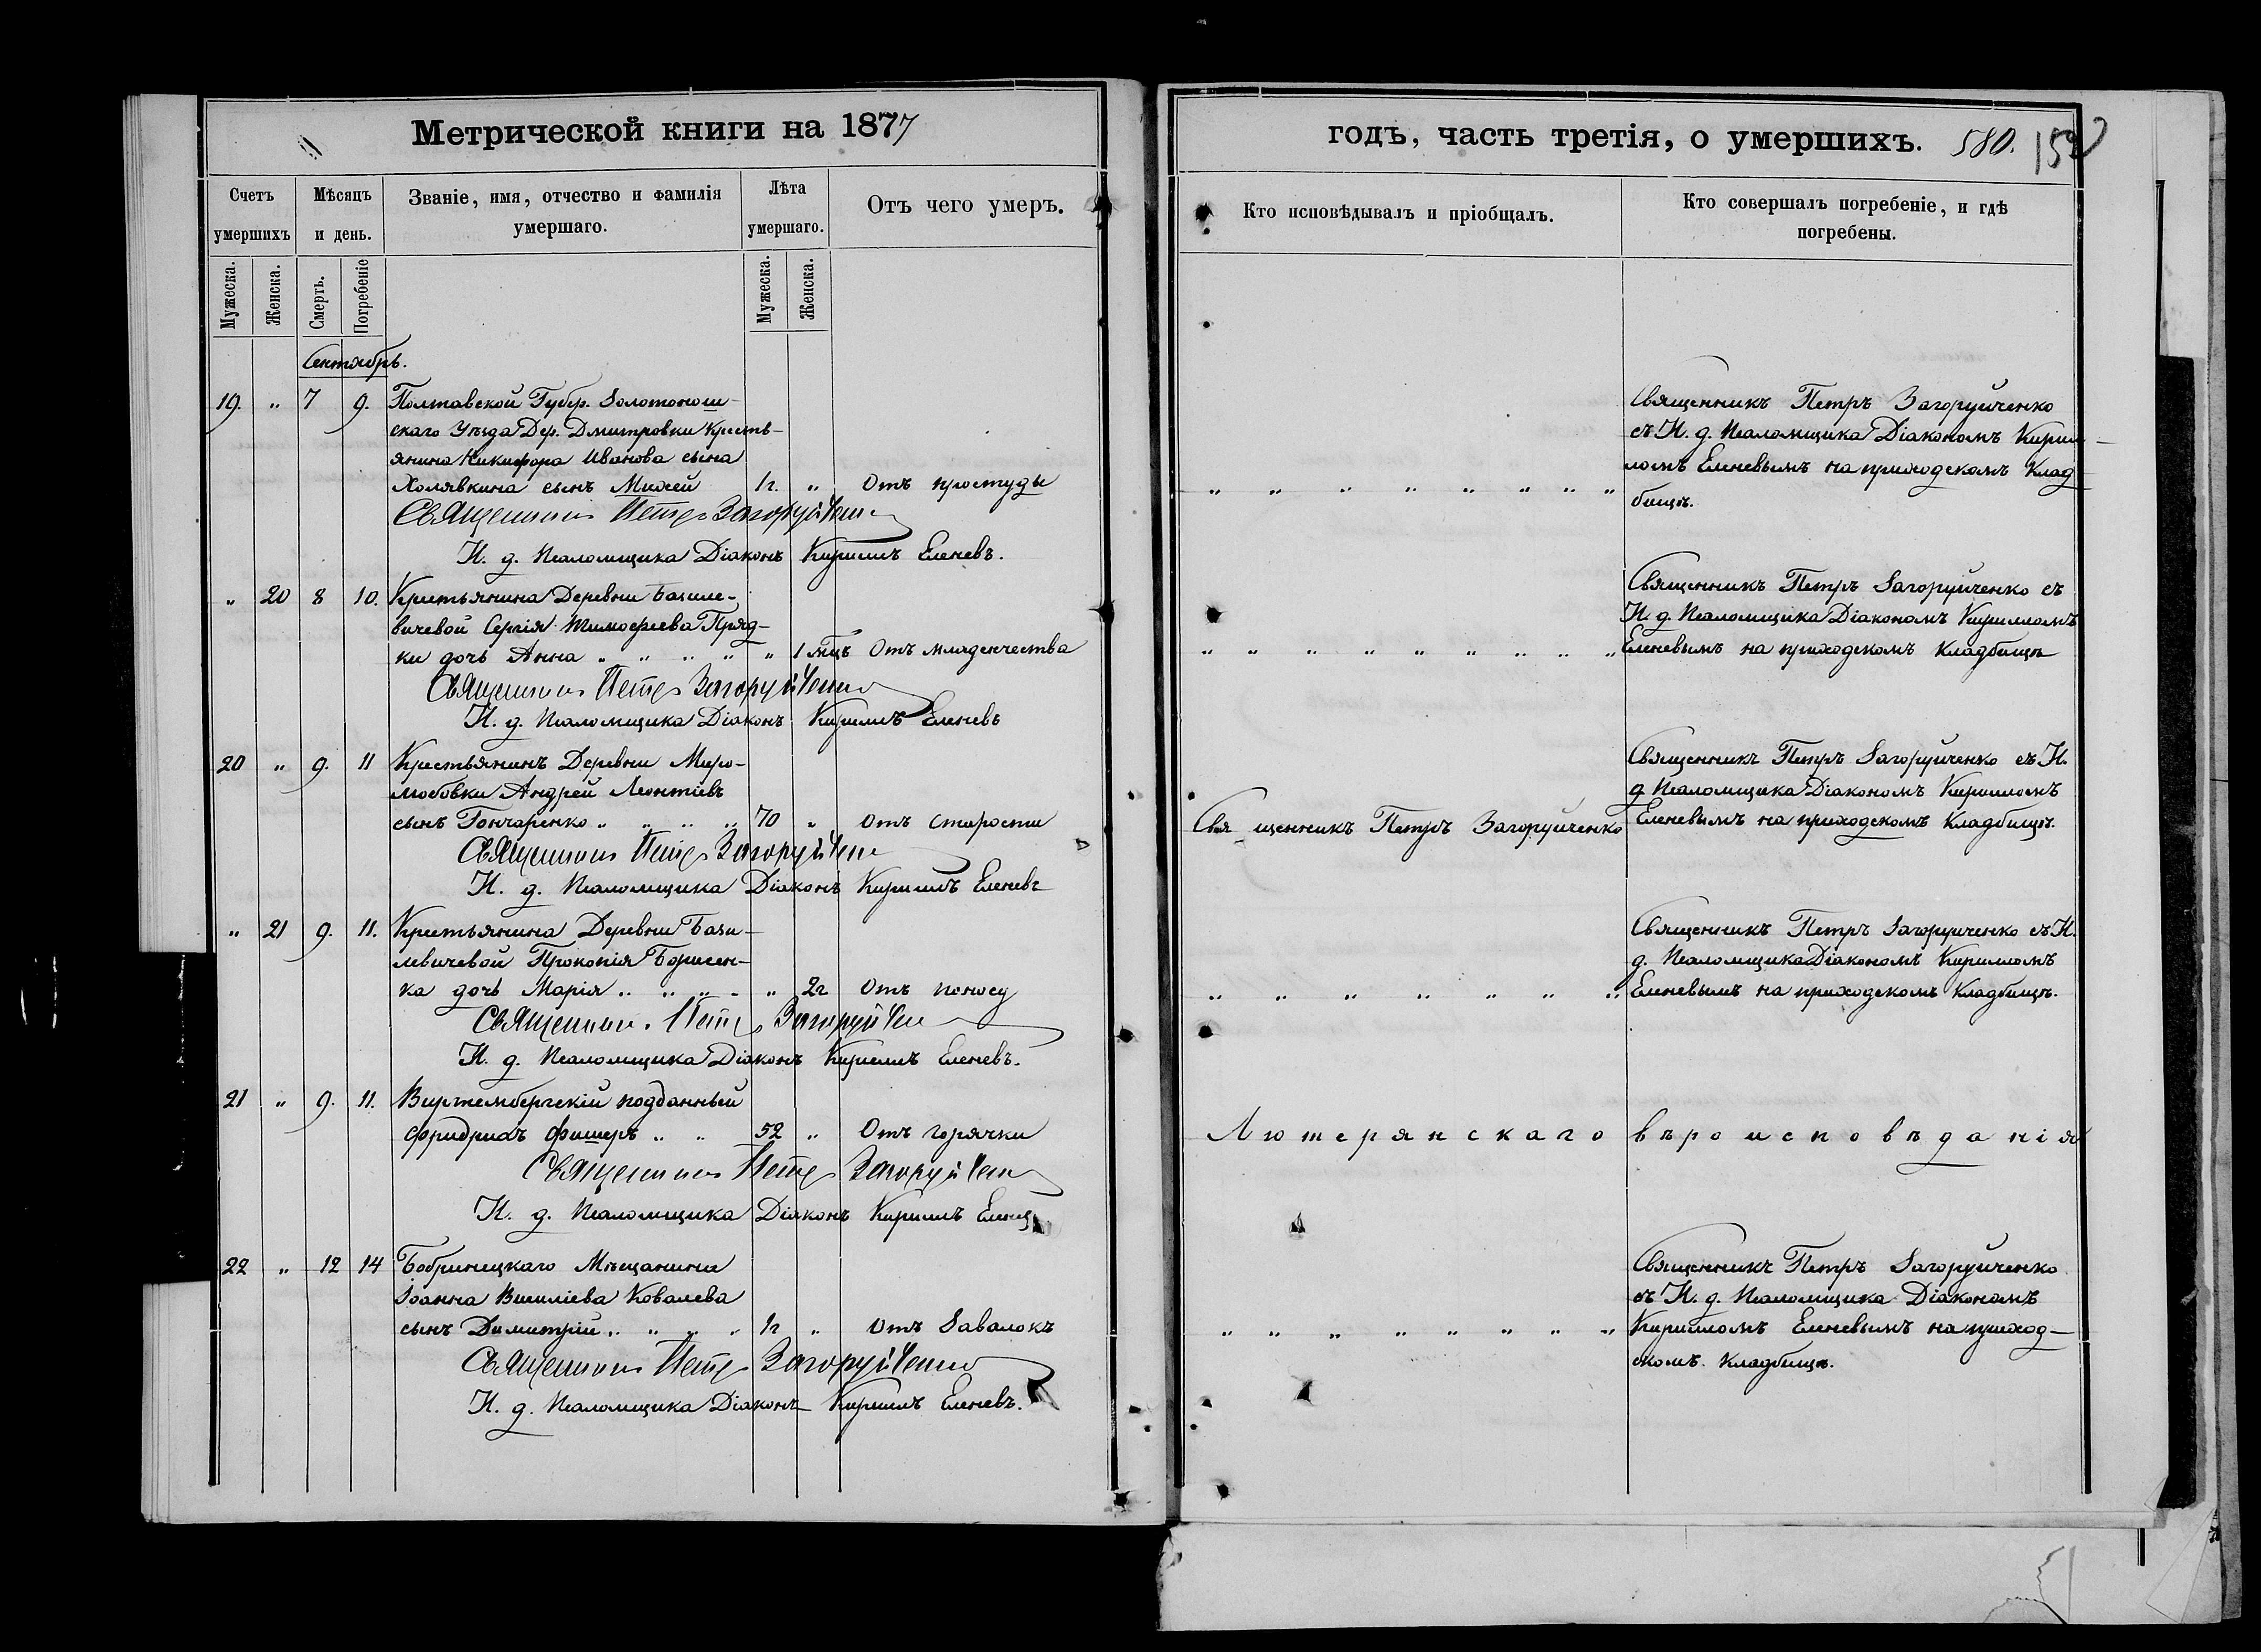 Метрической книги на 1877
Счетъ умершихъ
Мѣсяцъ и день.
Званіе, имя, отчество и фамилія умершаго.
Лѣта умершаго.
Отъ чего умеръ.
Мужеска.
Женска.
Смерть.
Погребеніе
Мужеска.
Женска.
Сентябрь.
19. " 7 9. Полтавской Губер. Золотонош-
скаго Уѣзда Дер. Дмитровки Кресть-
янина Никифора Иванова сына
Холявкина сынъ Михей 1г. " Отъ простуды
Священникъ Петръ Загоруйченко
И. д. Псаломщика Діаконъ Кириллъ Еленевъ.
" 20 8 10. Крестьянина Деревни Базиле-
вичевой Сергія Тимофеева Пряд-
ки дочь Анна " " " " " 1 мѣц Отъ младенчества
Священникъ Петръ Загоруйченко
И. д. Псаломщика Діаконъ Кириллъ Еленевъ
20 " 9. 11 Крестьянинъ Деревни Миро-
любовки Андрей Леонтіевъ
сынъ Гончаренко " " " " 70 " отъ старости
Священникъ Петръ Загоруйченко
И. д. Псаломщика Діаконъ Кириллъ Еленевъ
" 21 9. 11. Крестьянина Деревни Бази-
левичевой Прокопія Борисен-
ка дочь Марія " " " " " 2г Отъ поносу
Священникъ Петръ Загоруйченко
И. д. Псаломщика Діаконъ Кириллъ Еленевъ.
21 " 9. 11. Виртембергскій подданный
Фридрихъ Фишеръ " " 52 " Отъ горячки
Священникъ Петръ Загоруйченко
И. д. Псаломщика Діаконъ Кириллъ Еленевъ
22 " 12 14 Бобринецкаго Мѣщанина
Іоанна Василіева Ковалева
сынъ Димитрій " " " " 1г " Отъ Завалокъ
Священникъ Петръ Загоруйченко
И. д. Псаломщика Діаконъ Кириллъ Еленевъ.
годъ, часть третія, о умершихъ. 580.
Кто исповѣдывалъ и пріобщалъ.
Кто совершалъ погребеніе, и гдѣ погребены.
Священникъ Петръ Загоруйченко
съ И. д. Псаломщика Діакономъ Кирил-
ломъ Еленевымъ на приходскомъ Клад-
" " " " " " " "
бищѣ.
Священникъ Петръ Загоруйченко съ
И. д. Псаломщика Діакономъ Кирилломъ
" " " " " " " " " Еленевымъ на приходскомъ Кладбищѣ
Священникъ Петръ Загоруйченко съ И.
д Псаломщика Діакономъ Кирилломъ
Священникъ Петръ Загоруйченко Еленевымъ на приходскомъ Кладбищѣ.
Священникъ Петръ Загоруйченко съ И.
д. Псаломщика Діакономъ Кирилломъ
" " " " " " " Еленевымъ на приходскомъ Кладбищѣ.
Лютерянскаго вѣроисповѣданія
Священникъ Петръ Загоруйченко
съ И. д. Псаломщика Діакономъ
" " " " " " " " Кирилломъ Еленевымъ на приход-
скомъ Кладбищѣ.